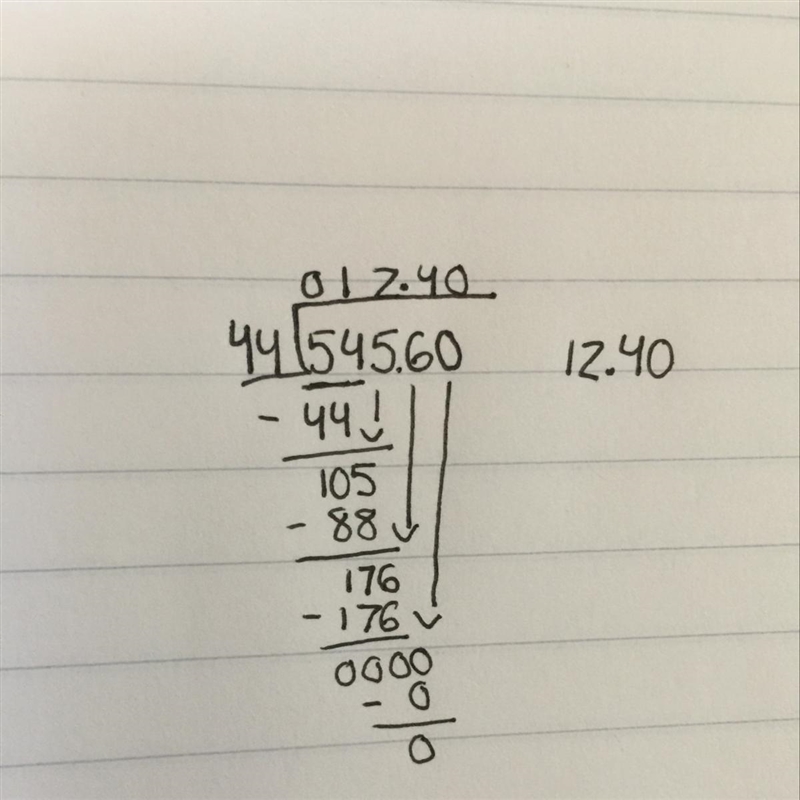 012.40
44 545.60 12.40
- 44
105
- 88
176
- 176
0000
- 0
0